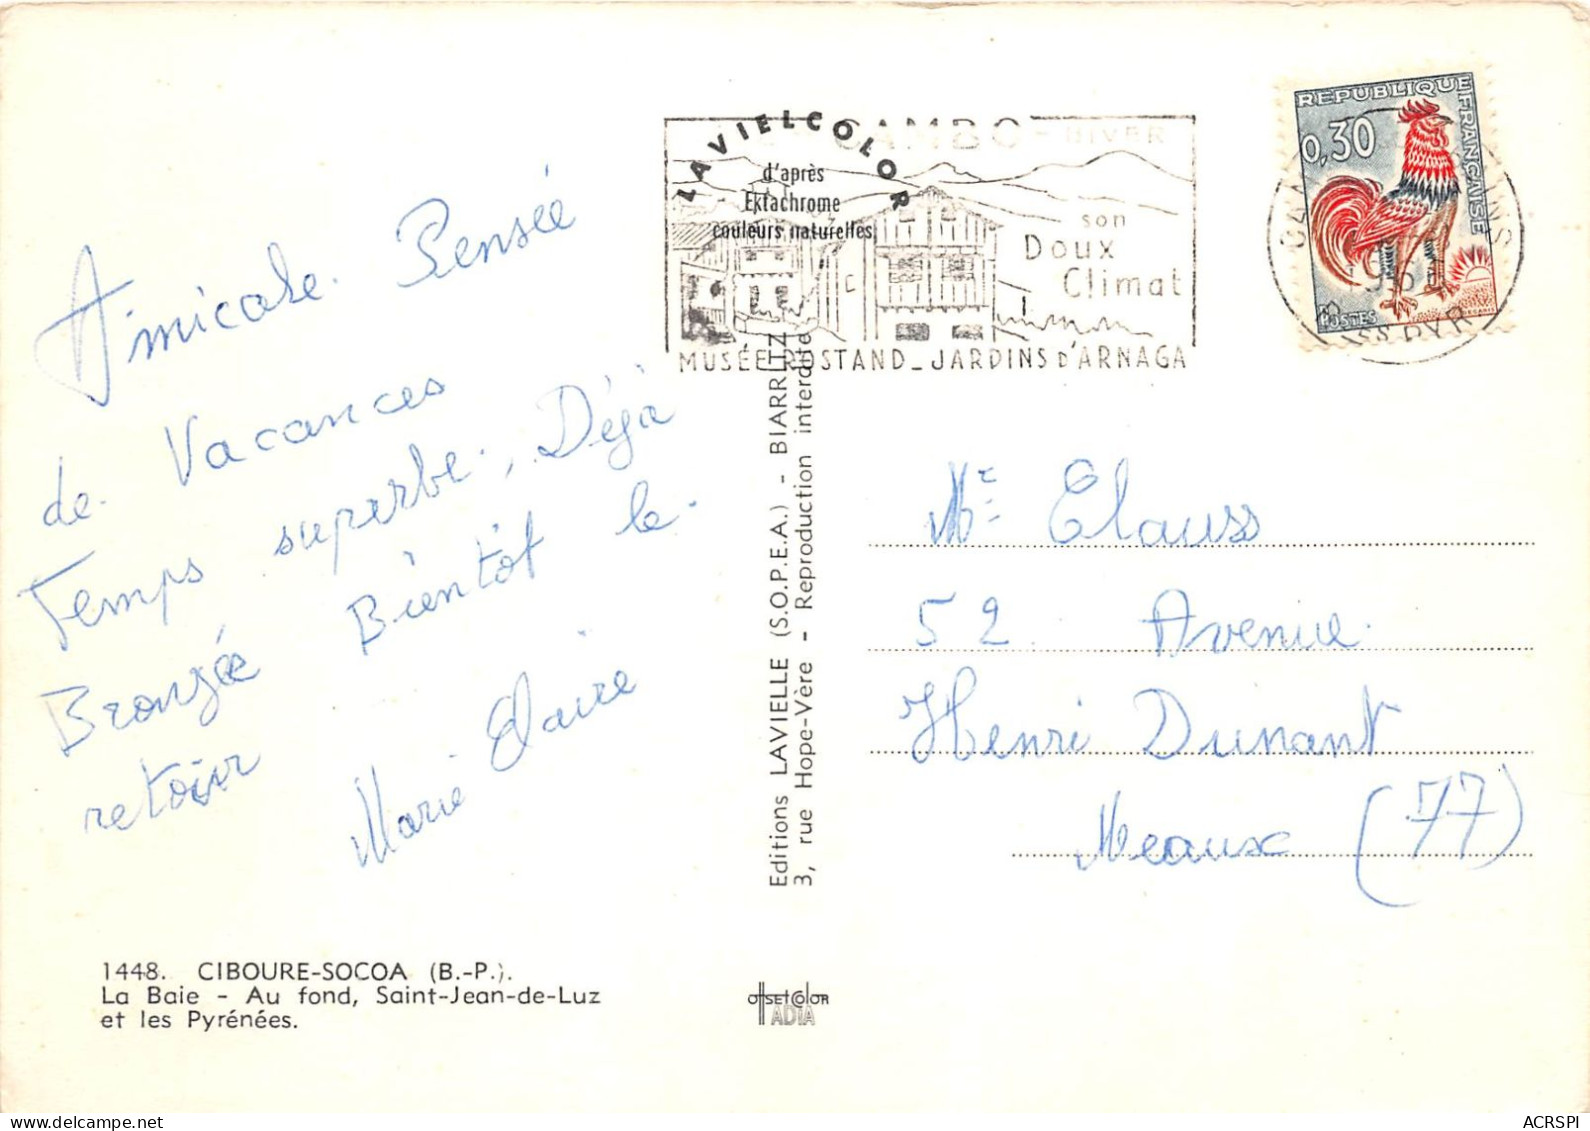 Amicale Pensée
de Vacances
Temps superbe, Déjà
Bronzée Bientôt le
retour
Marie Claire
1448. CIBOURE-SOCOA (B.-P.).
La Baie - Au fond, Saint-Jean-de-Luz
et les Pyrénées.
LAVIELCOLOR
d'après
Ektachrome
couleurs naturelles
CAMBO - HIVER
son
Doux
Climat
MUSÉE ROSTAND_JARDINS D'ARNAGA
REPUBLIQUE FRANÇAISE
0,30
POSTES
Editions LAVIELLE (S.O.P.E.A.) - BIARRITZ
3, rue Hope-Vère - Reproduction interdite
OFFSET COLOR
ADIA
Mr Clauss
52 Avenue
Henri Dunant
Meaux (77)
delcampe.net
ACRSPI